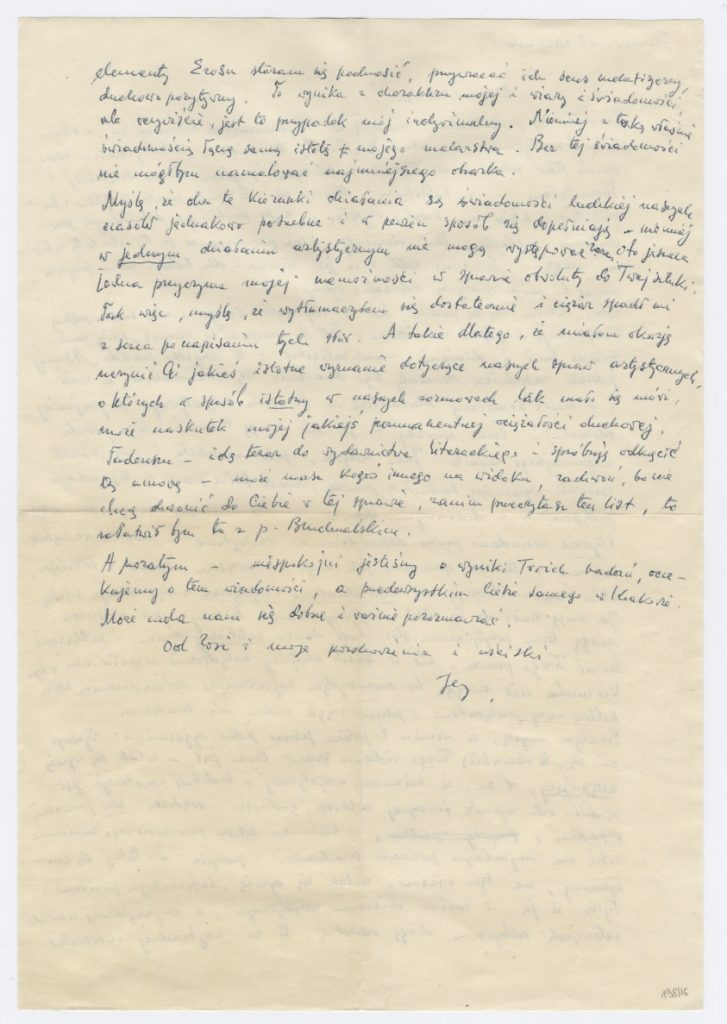 elementy Erosu staram się podnosić, przywracać ich sens metafizyczny,
duchowo pozytywny. To wynika z charakteru mojej i wiary i świadomości
ale oczywiście, jest to przypadek mój indywidualny. Niemniej z taką właśnie
świadomością łączę samą istotę mojego malarstwa. Bez tej świadomości
nie mógłbym namalować najmniejszego obrazka.
Myślę, że oba te kierunki działania są świadomości ludzkiej naszych
czasów jednakowo potrzebne i w pewien sposób się dopełniają – niemniej
w jednym działaniu artystycznym nie mogą występować razem. Oto jeszcze
jedna przyczyna mojej niemożności w sprawie okładki do Twej sztuki.
Tak więc, myślę, że wytłumaczyłem się dostatecznie i ciężar spadł mi
z serca po napisaniu tych słów. A także dlatego, że miałem okazję
uczynić Ci jakieś istotne wyznanie dotyczące naszych spraw artystycznych,
o których w sposób istotny w naszych rozmowach tak mało się mówi,
może na skutek mojej jakiejś permanentnej ociężałości duchowej.
Tadeuszu – idę teraz do wydawnictwa Literackiego – spróbuję odkręcić
tę umowę – może masz kogoś innego na widoku, zadzwoń, bo nie
chcę dzwonić do Ciebie w tej sprawie, zanim przeczytasz ten list, to
załatwię tym tu z p.
A pozatym – niespokojni jesteśmy o wyniki Twoich badań, ocze-
kujemy o tem wiadomości, a przedewszystkim Ciebie samego w Krakowie.
Może uda nam się dobrze i pozozmawiać.
Od Zosi i moje pozdrowienia i uściski
Jerzy
198/16